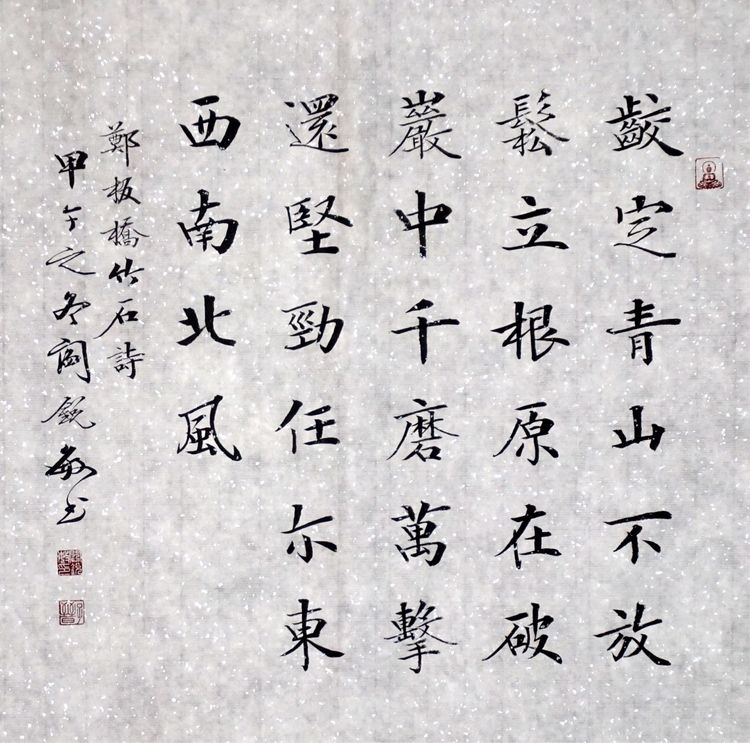 齩定青山不放
鬆立根原在破
巖中千磨萬擊
還堅勁任尒東
西南北風
鄭板橋竹石詩
甲午之冬閻銳敏书